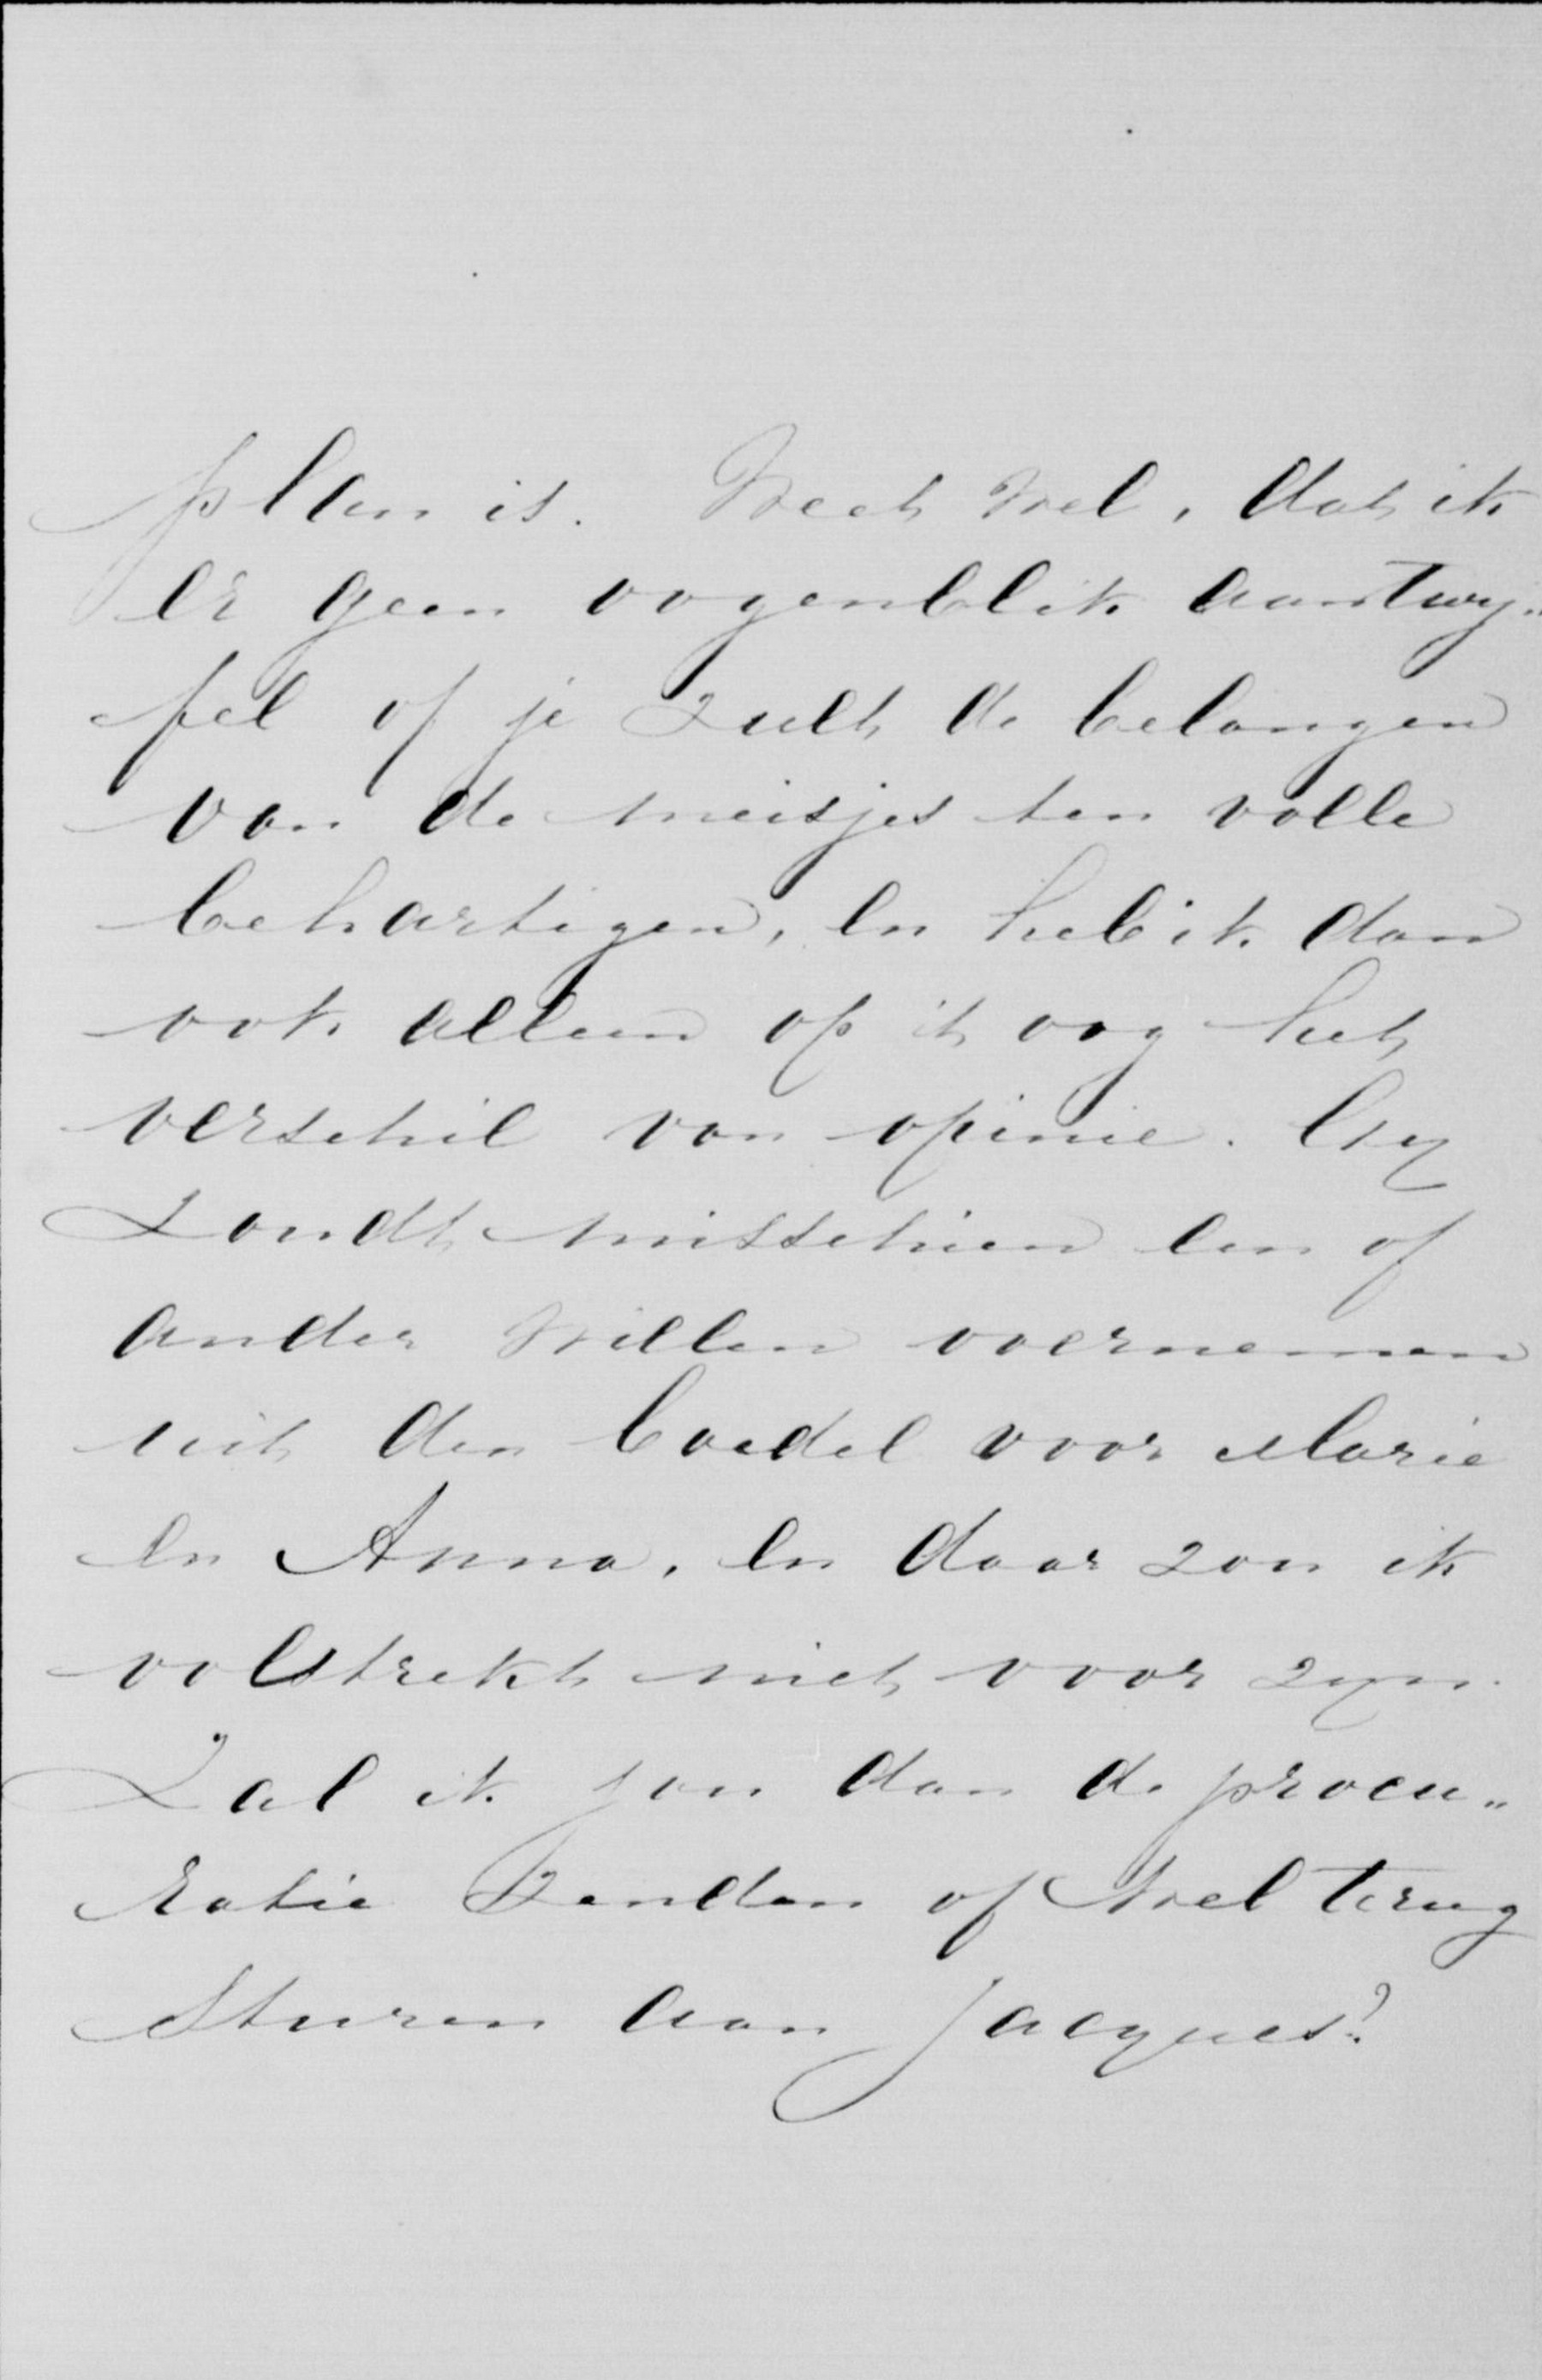 plan is. Weet wel, dat ik
er geen oogenblik aan twij„
fel of je zult de belangen
van de meisjes ten volle
behartigen, en heb ik dan
ook alleen op 't oog het
verschil van opinie. Gy
zoudt misschien een of
ander willen overnemen
uit den boedel voor Marie
en Anna, en daar zou ik
volstrekt niet voor zyn.
Zal ik jou dan de procu„
ratie zenden of wel terug
sturen aan Jacques?